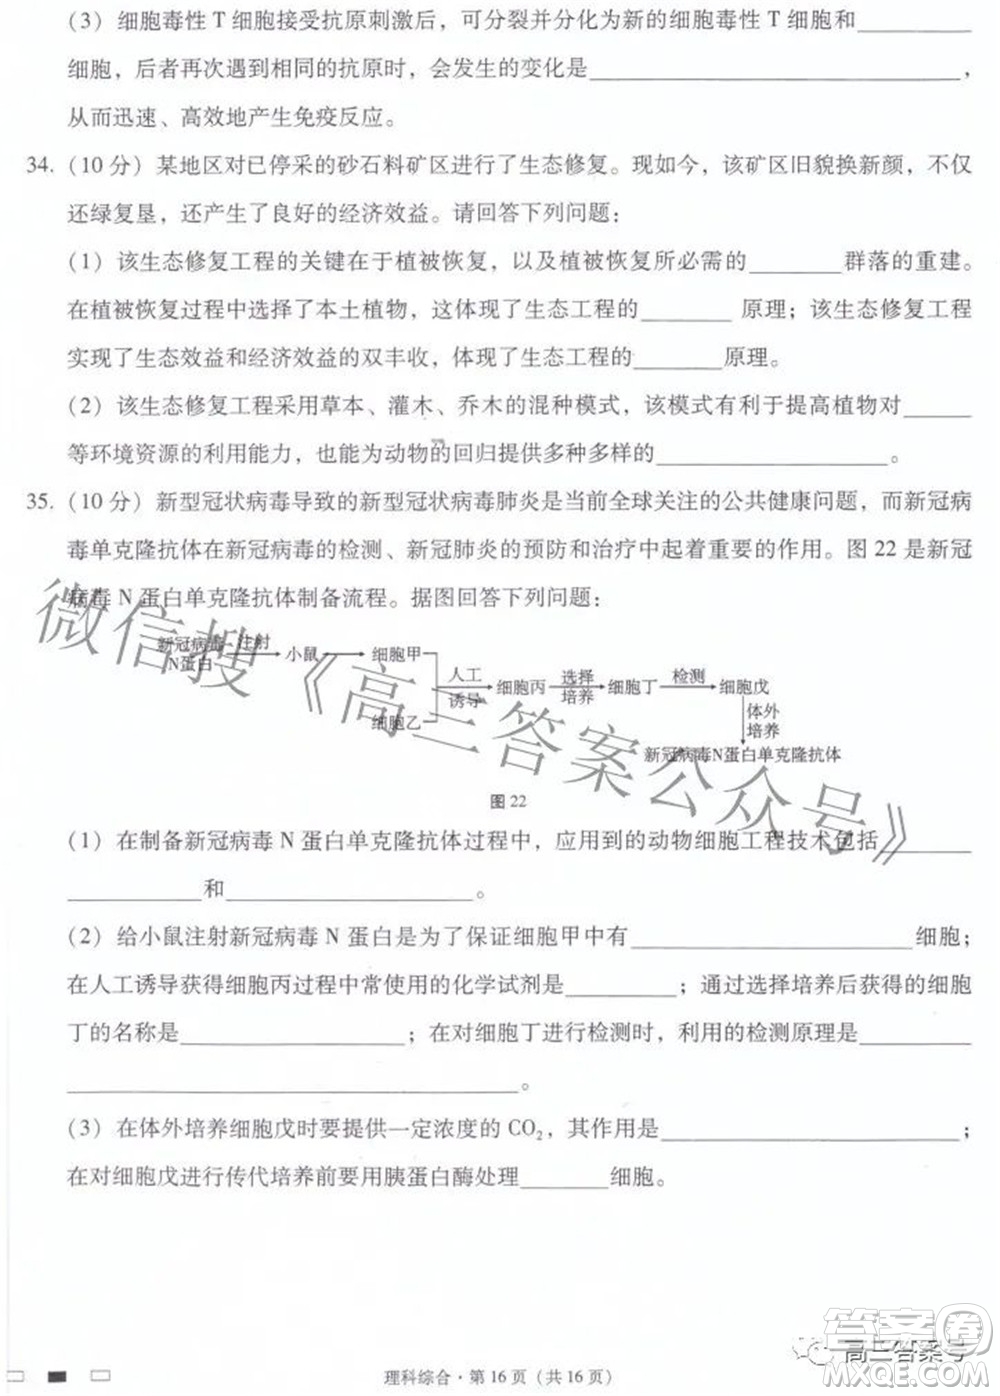 (3) 细胞毒性 T 细胞接受抗原刺激后，可分裂并分化为新的细胞毒性 T 细胞和________
细胞，后者再次遇到相同的抗原时，会发生的变化是________________________，
从而迅速、高效地产生免疫反应。
34. (10 分) 某地区对已停采的砂石料矿区进行了生态修复。现如今，该矿区旧貌换新颜，不仅
还绿复垦，还产生了良好的经济效益。请回答下列问题：
(1) 该生态修复工程的关键在于植被恢复，以及植被恢复所必需的________群落的重建。
在植被恢复过程中选择了本土植物，这体现了生态工程的________ 原理；该生态修复工程
实现了生态效益和经济效益的双丰收，体现了生态工程的________原理。
(2) 该生态修复工程采用草本、灌木、乔木的混种模式，该模式有利于提高植物对______
等环境资源的利用能力，也能为动物的回归提供多种多样的________________。
35. (10 分) 新型冠状病毒导致的新型冠状病毒肺炎是当前全球关注的公共健康问题，而新冠病
毒单克隆抗体在新冠病毒的检测、新冠肺炎的预防和治疗中起着重要的作用。图 22 是新冠
病毒 N 蛋白单克隆抗体制备流程。据图回答下列问题：
新冠病毒N蛋白 注射 小鼠 细胞甲
细胞乙
人工诱导 细胞丙 选择培养 细胞丁 检测 细胞戊
体外培养
新冠病毒N蛋白单克隆抗体
图 22
(1) 在制备新冠病毒 N 蛋白单克隆抗体过程中，应用到的动物细胞工程技术包括________
____________和______________________。
(2) 给小鼠注射新冠病毒 N 蛋白是为了保证细胞甲中有________________________细胞；
在人工诱导获得细胞丙过程中常使用的化学试剂是__________；通过选择培养后的细胞
丁的名称是____________________；在对细胞丁进行检测时，利用的检测原理是__________
________________________________________。
(3) 在体外培养细胞戊时要提供一定浓度的 CO₂，其作用是__________________________；
在对细胞戊进行传代培养前要用胰蛋白酶处理________细胞。
理科综合·第 16 页（共 16 页）
微信搜《高三答案公众号》
高三答案号
答案圈
MXQE.COM